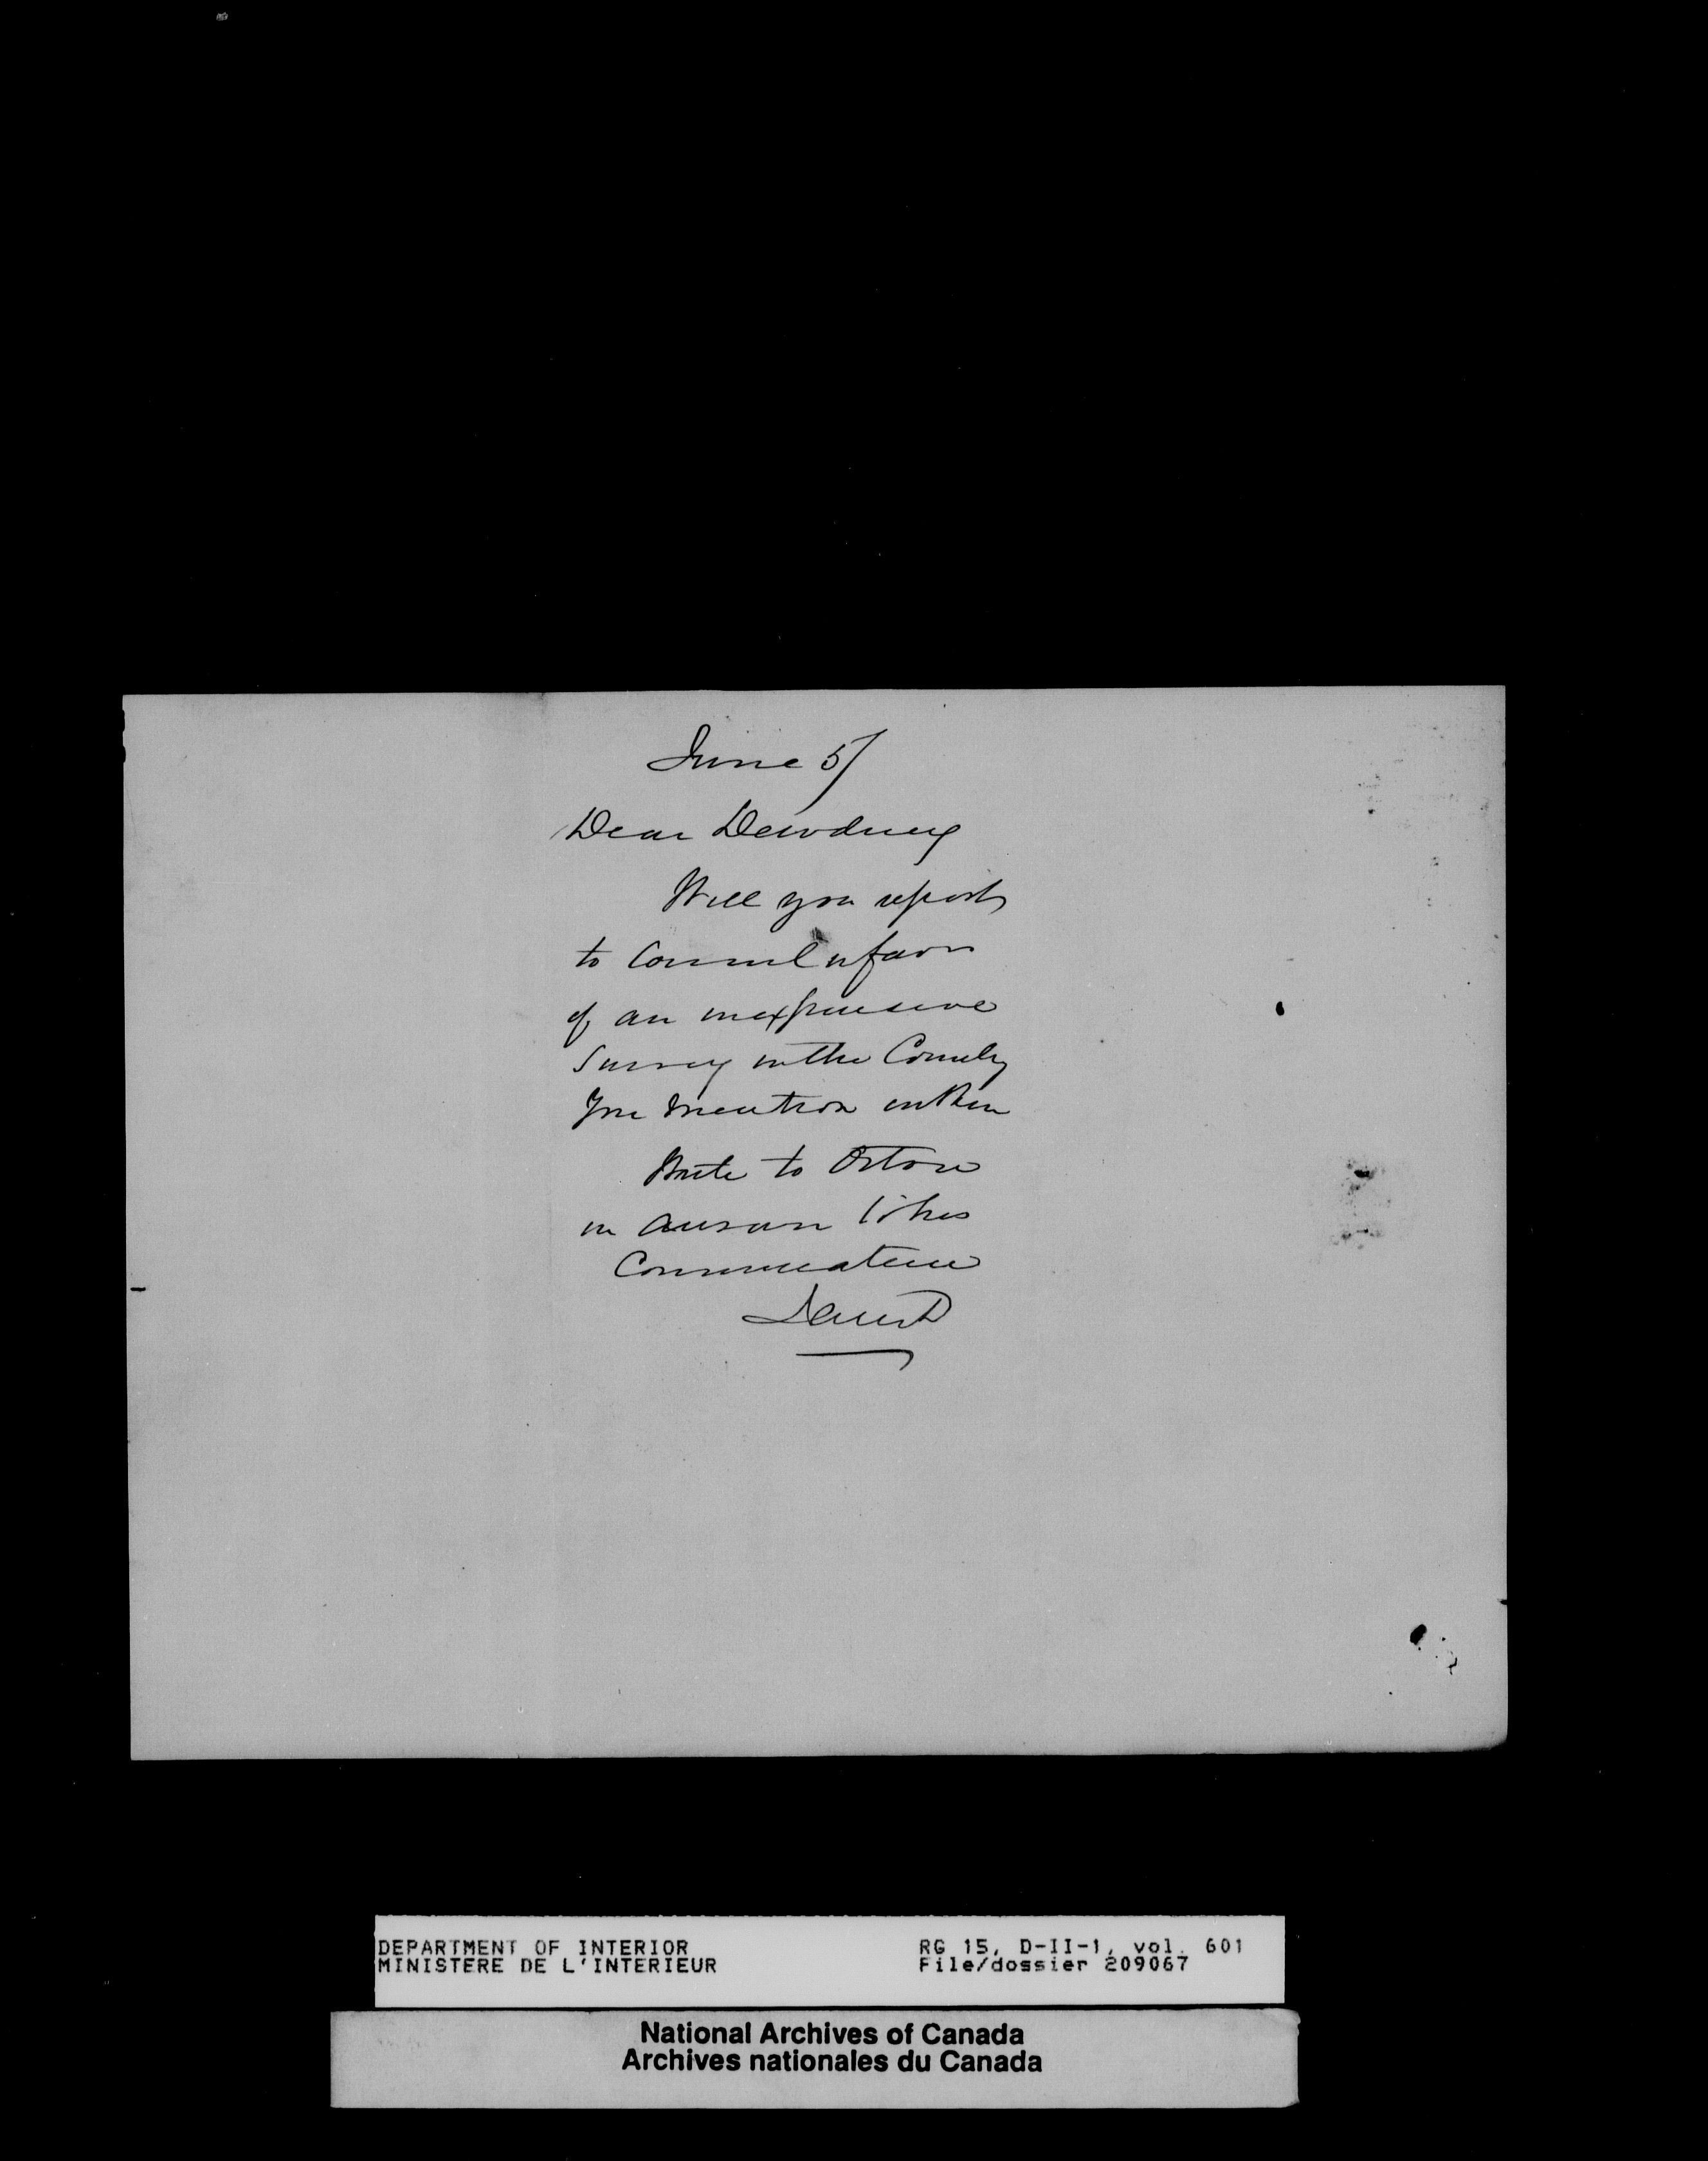 June 5/
Dear Dewdney
Will you report
to Council in favor
of an inexpensive
Survey in the Country
you mention
Write to Orton
in answer to his
Communication
DEPARTMENT OF INTERIOR
MINISTERE DE L'INTERIEUR
RG 15, D-II-1, vol. 601
File/dossier 209067
National Archives of Canada
Archives nationales du Canada